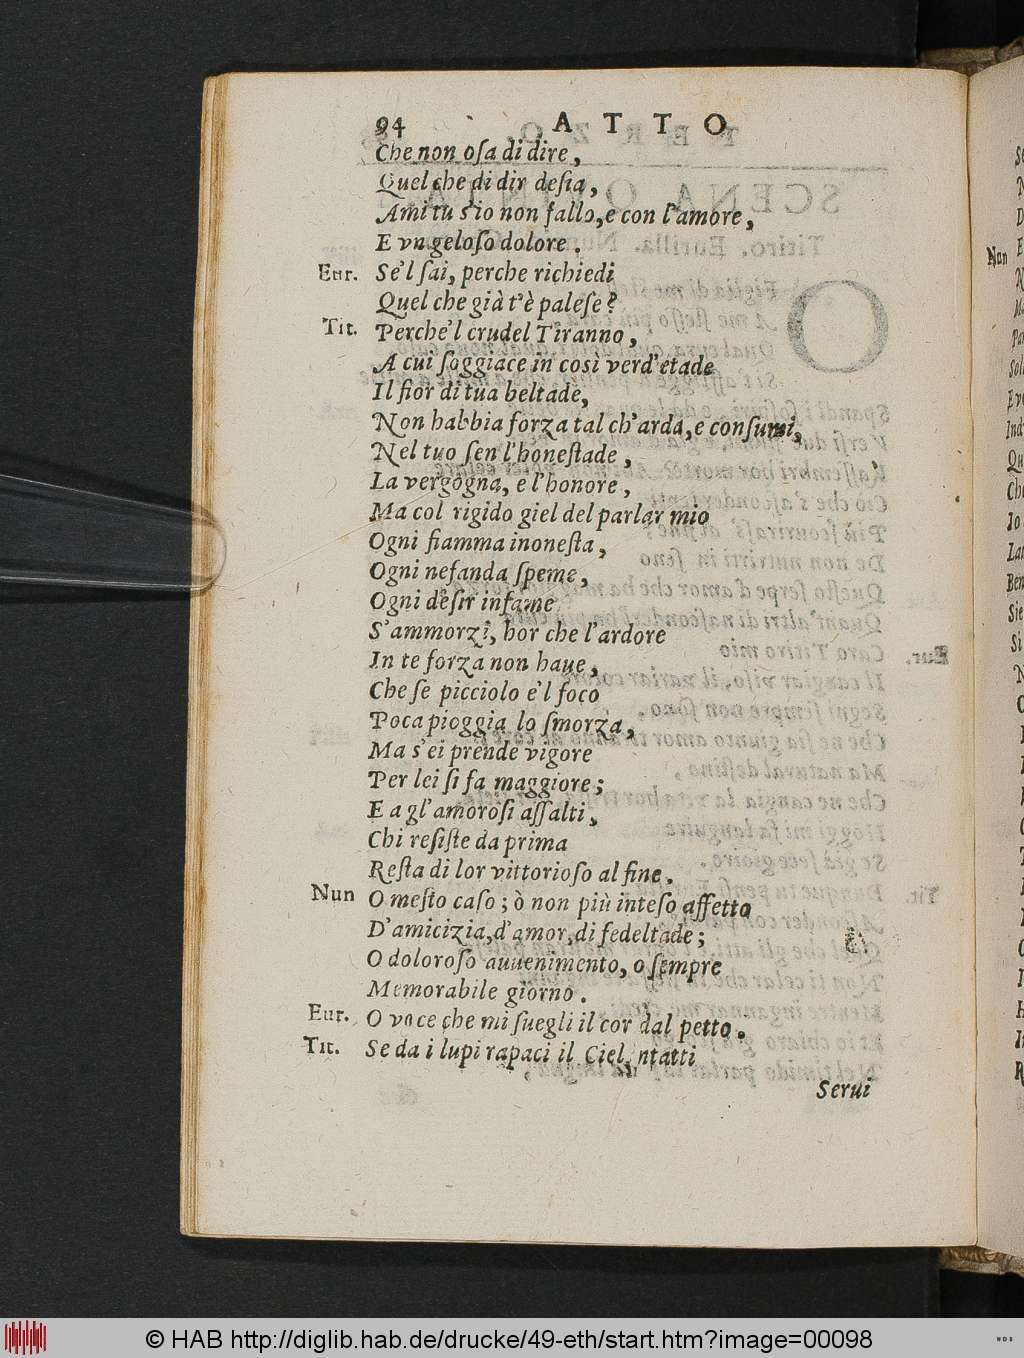 94 ATTO
Che non oſa di dire,
Quel che di dir deſia,
Ami tu s'io non fallo, e con l'amore,
E vn geloſo dolore.
Eur. Se'l ſai, perche richiedi
Quel che già t'è paleſe?
Tit. Perche'l crudel Tiranno,
A cui ſoggiace in così verd'etade
Il fior di tua beltade,
Non habbia forza tal ch'arda, e conſumi,
Nel tuo ſen l'honeſtade,
La vergogna, e l'honore,
Ma col rigido giel del parlar mio
Ogni fiamma inoneſta,
Ogni nefanda ſpeme,
Ogni deſir infame
S'ammorzi, hor che l'ardore
In te forza non haue,
Che ſe picciolo e'l foco
Poca pioggia lo ſmorza,
Ma s'ei prende vigore
Per lei ſi fa maggiore;
E a gl'amoroſi aſſalti,
Chi reſiſte da prima
Reſta di lor vittorioſo al fine.
Nun O meſto caſo; ò non più inteſo affetto
D'amicizia, d'amor, di fedeltade;
O doloroſo auuenimento, o ſempre
Memorabile giorno.
Eur. O voce che mi ſuegli il cor dal petto.
Tit. Se da i lupi rapaci il Ciel intatti
Serui
Nun
© HAB http://diglib.hab.de/drucke/49-eth/start.htm?image=00098